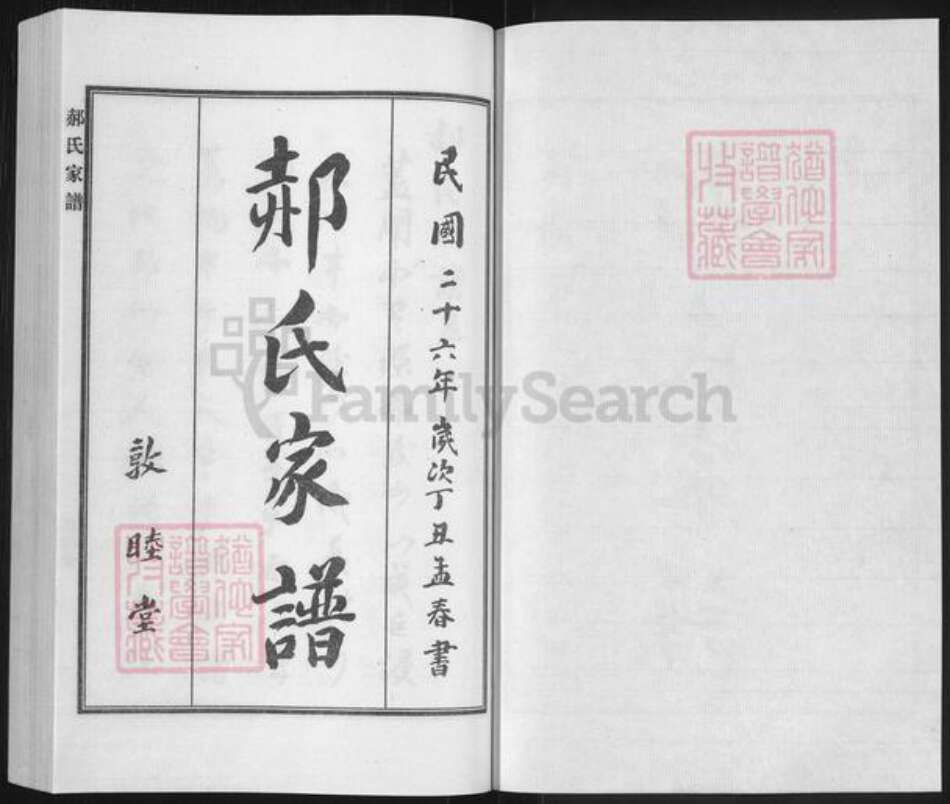 猶他家
譜學會
收藏
民國二十六年歲次丁丑孟春書
郝氏家譜
敦睦堂
猶他家
譜學會
收藏
郝氏家譜
FamilySearch